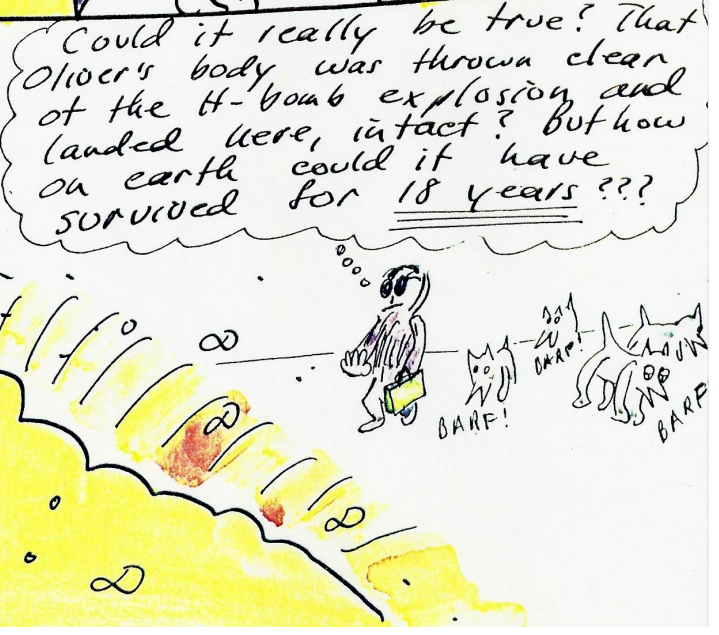 Could it really be true? That
Oliver's body was thrown clear
of the H-bomb explosion and
landed here, intact? But how
on earth could it have
survived for 18 years???
BARF!
BARF!
BARF